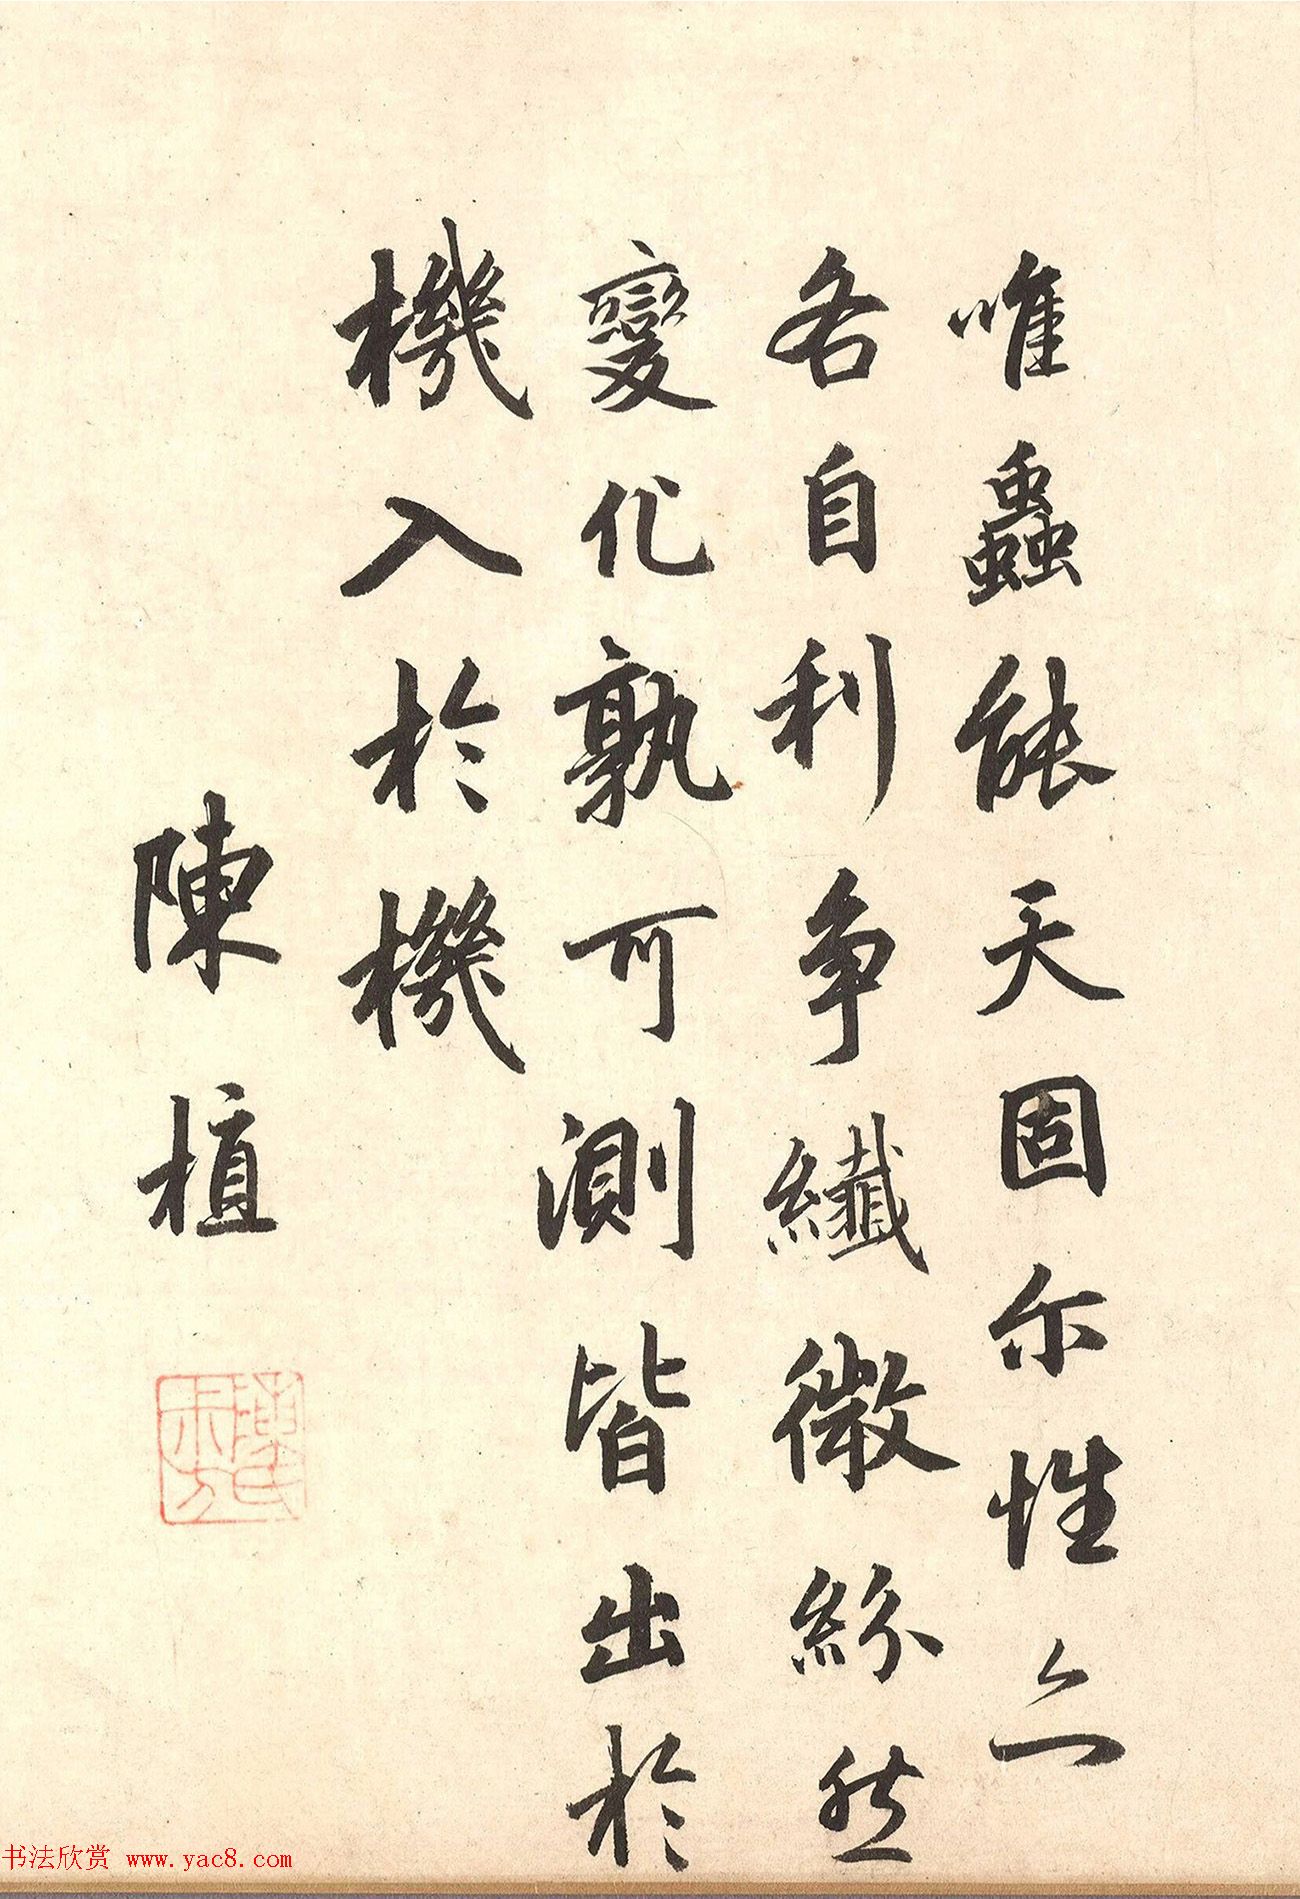 唯蟲能天固尔性亦
各自利争纖微紛然
變化孰可測皆出於
機入於機
陳植
陳氏
书法欣赏 www.yac8.com